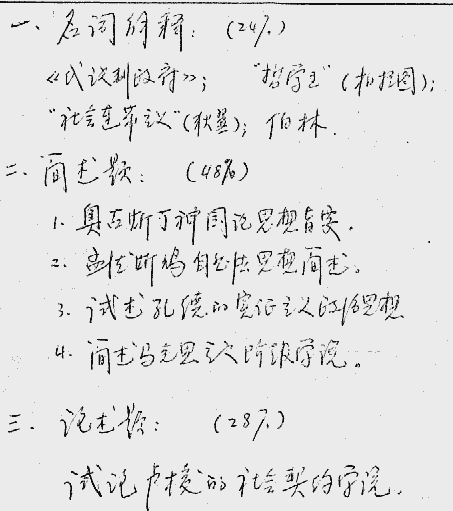 一、名词解释：(24%)
《代议制政府》； "哲学王"（柏拉图）；
"社会连带主义"（狄骥）；伯林.
二、简述题：(48%)
1. 奥古斯丁神国论思想旨要.
2. 孟德斯鸠自由法思想简述。
3. 试述孔德的实证主义政治思想
4. 简述马克思主义阶级学说。
三、论述题：(28%)
试论卢梭的社会契约学说.